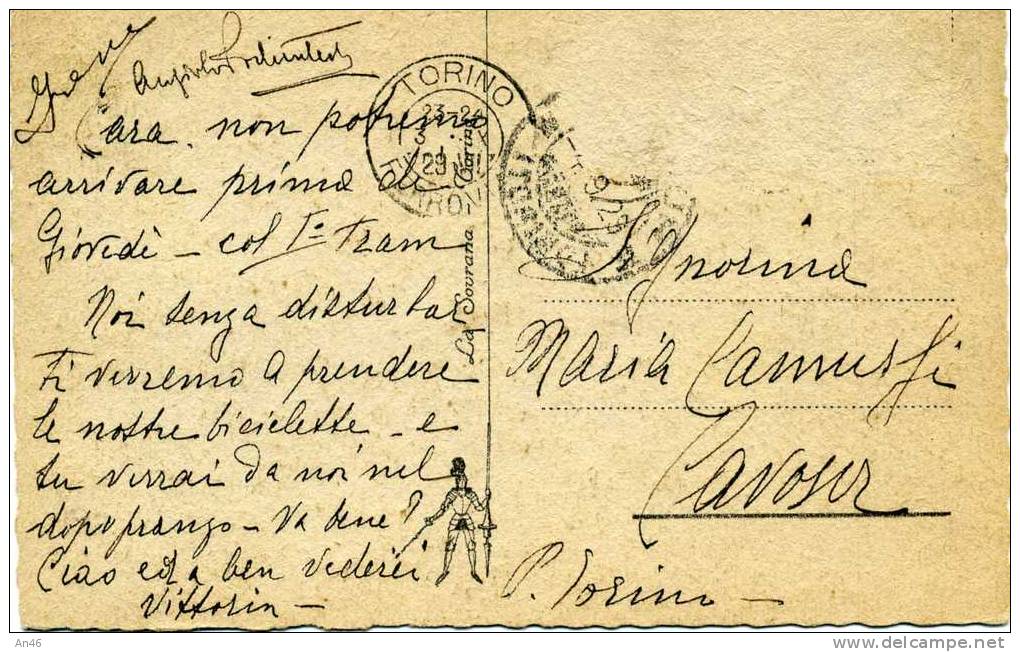 Cara. non potremo
arrivare prima di
Giovedì - col I° Tram
Noi senza disturbar
ti verremo a prendere
le nostre biciclette - e
tu verrai da noi nel
dopopranzo - Va bene?
Ciao ed a ben vederci
Vittorin -
TORINO
23-24
29
FERROVIA
La Sovrana Torino
Signorina
Maria Camussi
Cavour
P. Torino -
An46
www.delcampe.net